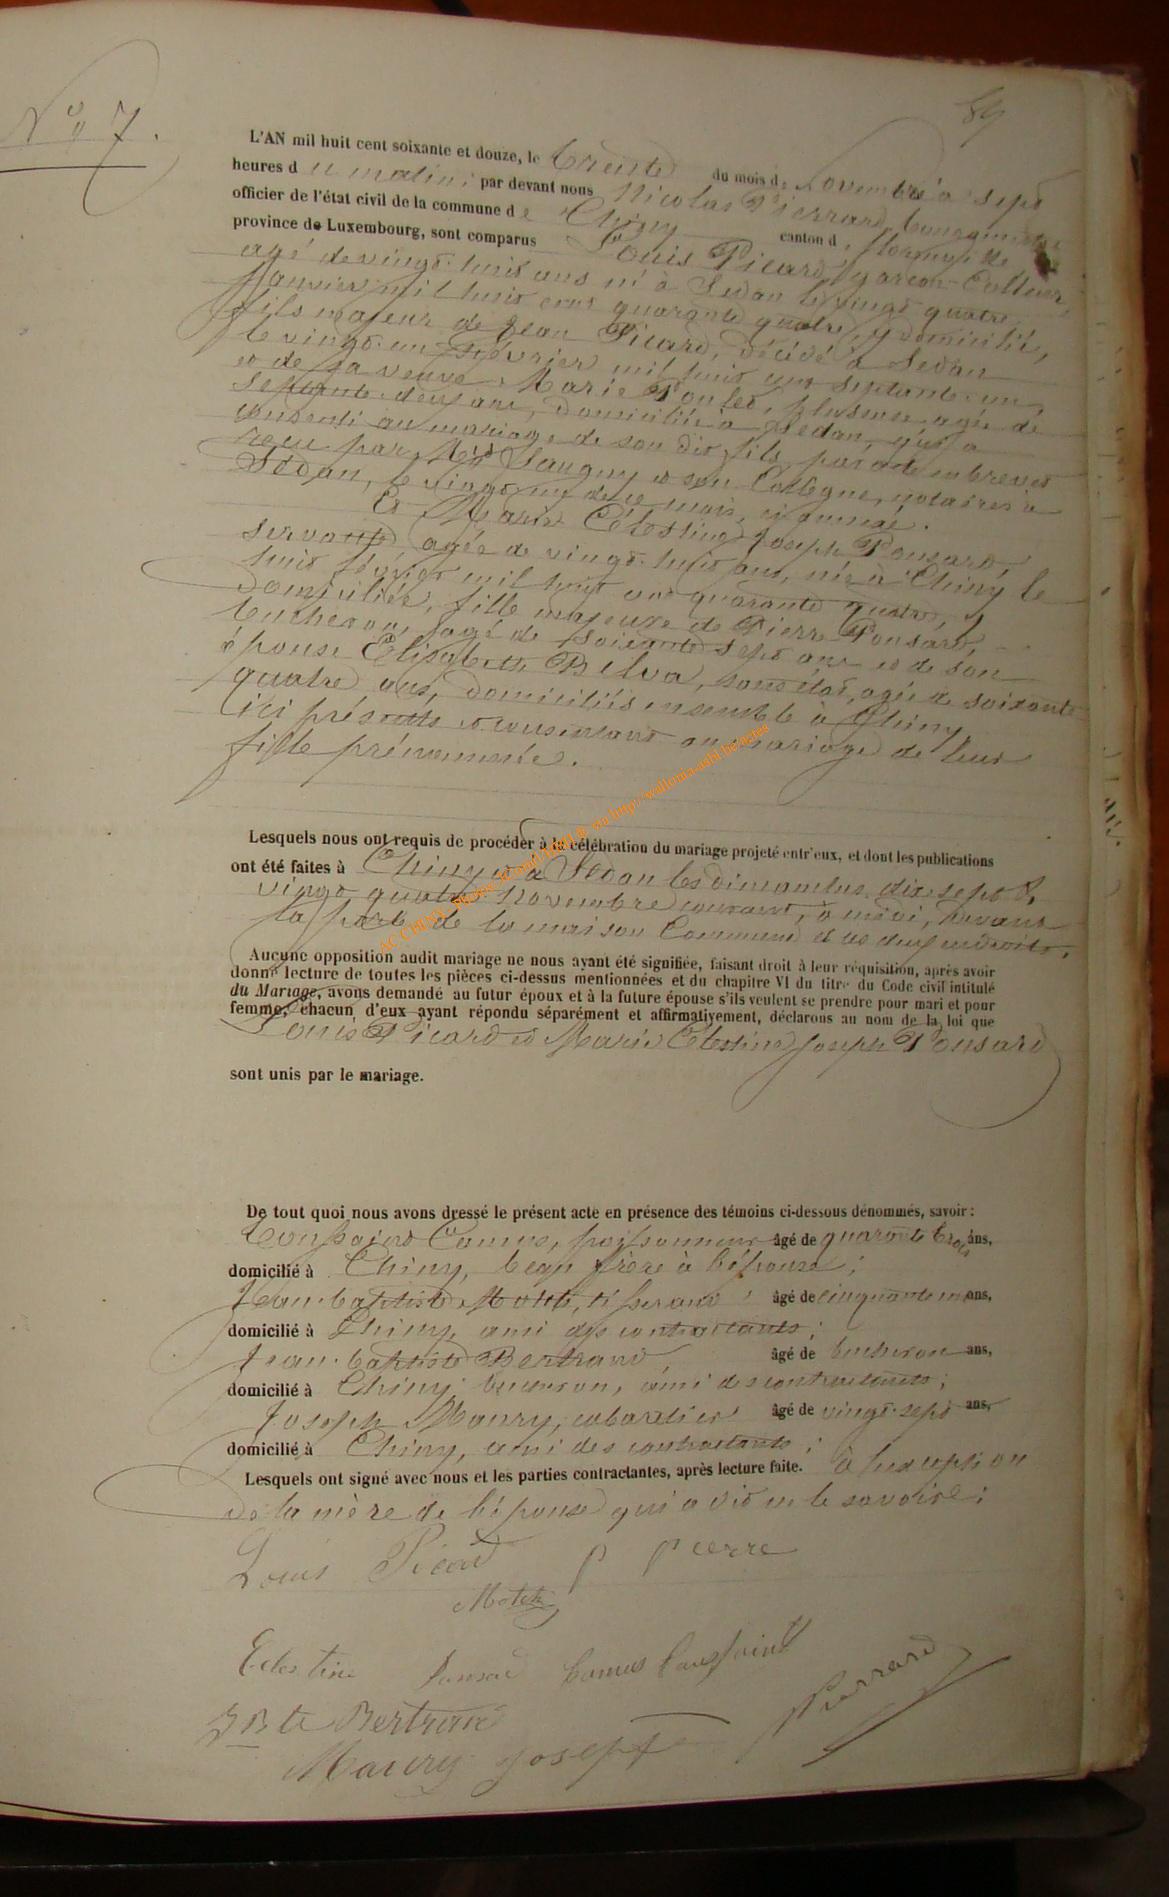 89
N° 7.
L'AN mil huit cent soixante et douze, le trente du mois de Novembre à sept
heures du matin; par devant nous Nicolas Pierrard, bourgmestre
officier de l'état civil de la commune de Chiny canton de
province de Luxembourg, sont comparus Louis Picard, garçon
agé de vingt-huit ans né à Sedan le vingt quatre
Janvier mil huit cent quarante quatre, y domicilié,
fils majeur de Jean Picard, décédé à Sedan
le vingt-un février mil huit cent septante-un,
et de sa veuve Marie agée de
septante-deux ans, domiciliée à Sedan, qui a
consenti au mariage de son dit fils par acte en brevet
reçu par Saugny et son Collègue, notaires à
Sédan, le de ce mois,
Et Marie Célestine Joseph Ponsard,
servante agée de vingt-huit ans, née à Chiny le
huit février mil huit cent quarante quatre, y
domiciliée, fille majeure de Pierre Ponsard,
bucheron, agé de soixante sept ans et de son
épouse Elisabeth Bilva, sans état, agée de soixante
quatre ans, domiciliés ensemble à Chiny,
ici présents et consentant au mariage de leur
fille prénommée.
Lesquels nous ont requis de procéder à la célébration du mariage projeté entr'eux, et dont les publications
ont été faites à Chiny et à Sédan les dimanches dix-sept &
vingt quatre novembre courant, à midi, devant
la porte de la maison Commune de ces deux endroits,
AC CHINY
http://wallonia-asbl.be/actes
Aucune opposition audit mariage ne nous ayant été signifiée, faisant droit à leur réquisition, après avoir
donné lecture de toutes les pièces ci-dessus mentionnées et du chapitre VI du titre du Code civil intitulé
du Mariage, avons demandé au futur époux et à la future épouse s'ils veulent se prendre pour mari et pour
femme; chacun d'eux ayant répondu séparément et affirmativement, déclarons au nom de la loi que
Louis Picard et Marie Célestine Joseph Ponsard
sont unis par le mariage.
De tout quoi nous avons dressé le présent acte en présence des témoins ci-dessous dénommés, savoir:
Toussaint Camus, âgé de quarante trois ans,
domicilié à Chiny, beau frère à l'épouse;
Jean-baptiste tisserand âgé de cinquante un ans,
domicilié à Chiny, ami des contractants;
Jean-baptiste Bertrand, âgé de bucheron ans,
domicilié à Chiny, bucheron, ami des contractants;
Joseph Maury, cabaretier âgé de vingt-sept ans,
domicilié à Chiny, ami des contractants;
Lesquels ont signé avec nous et les parties contractantes, après lecture faite. à l'exception
de la mère de l'épouse qui a dit ne le savoire;
Louis Picard P pierre
Célestine Camus Toussaint
Bte Bertrand Pierrard
Maury joseph